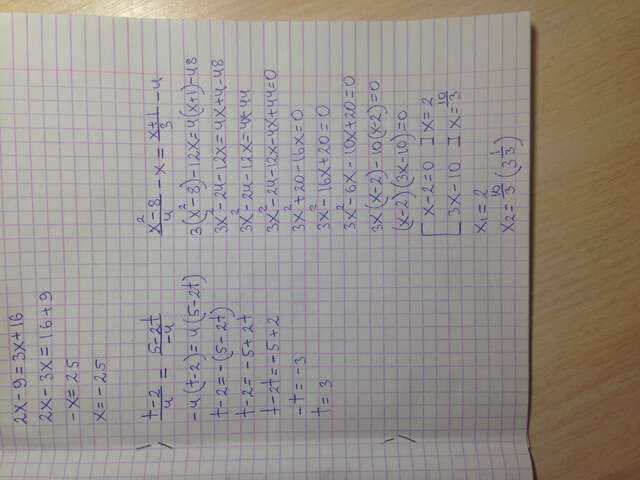 2x - 9 = 3x + 16
2x - 3x = 16 + 9
-x = 25
x = -25
t-2/4 = 5-2t/-4
-4(t-2) = 4(5-2t)
t-2 = -(5-2t)
t-2 = -5+2t
t-2t = -5+2
-t = -3
t = 3
x²-8/4 - x = x+1/3 - 4
3(x²-8)-12x=4(x+1)-48
3x²-24-12x=4x+4-48
3x²-24-12x=4x-44
3x²-24-12x-4x+44=0
3x²+20-16x=0
3x²-16x+20=0
3x²-6x-10x+20=0
3x(x-2)-10(x-2)=0
(x-2)(3x-10)=0
[ x-2=0 I x=2
3x-10 I x=10/3
x1=2
x2=10/3 (3 1/3)